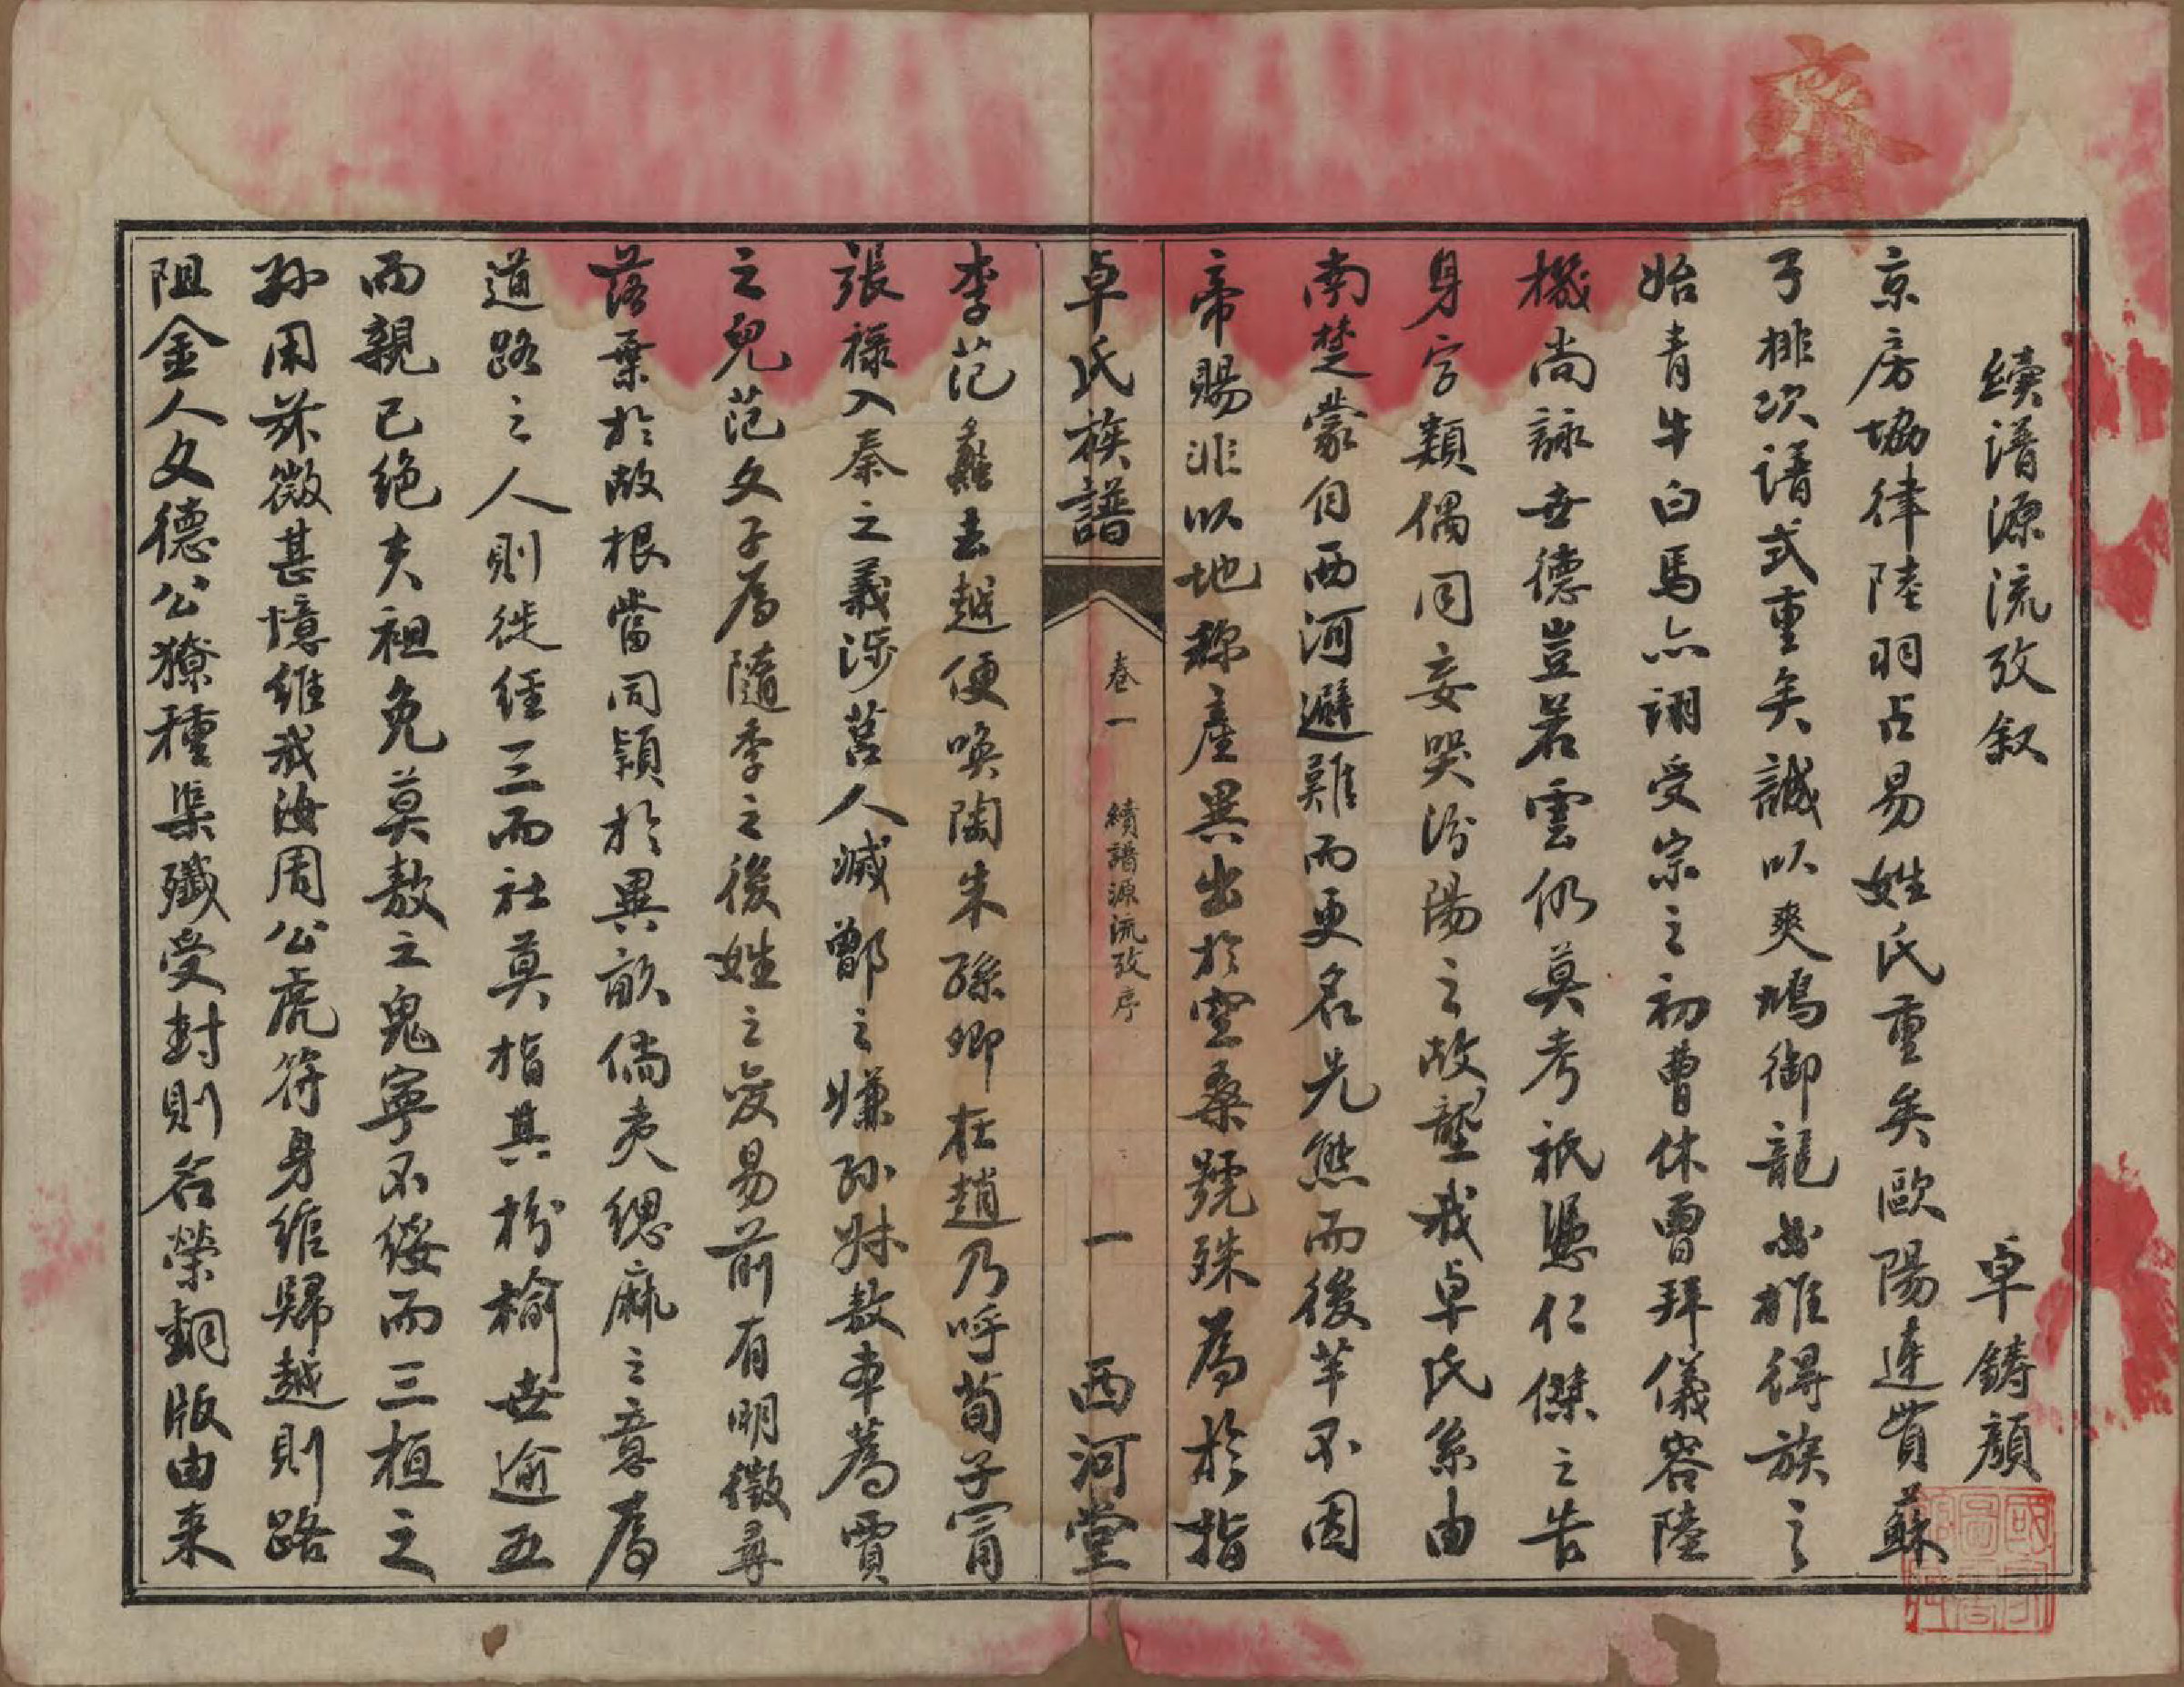 續譜源流攷叙
卓鑄顏
京房協律陸羽占易姓氏重矣歐陽連貫蘇
子排次譜式重矣誠以爽鳩御龍出推得族之
始青牛白馬亦詡受宗之初曹休曹拜儀容陸
機尚詠世德豈若雲仍莫考祇憑仁傑之告
身字類偶同妄哭汾陽之故壟我卓氏系由
南楚蒙自西河避難而更名先熊而後芊不因
帝賜非以地稱產異出於空桑號殊為於指
卓氏族譜
卷一
續譜源流攷序
一
西河堂
李范蠡去越便喚陶朱孫卿在趙乃呼荀子甯
張祿入秦之義涉莒人滅鄫之嫌孫叔敖本蒍賈
之兒范文子為隨季之後姓之變易前有明徵尋
落葉於故根當同穎於異畝倘夷緦麻之意為
道路之人則徙經三而社莫指其枌榆世逾五
而親已絶夫袒免莫敖之鬼寧不餒而三桓之
孫用茶微甚憶維我海周公虎符身綰歸越則路
阻金人文德公獠種渠殲受封則名榮銅版由来